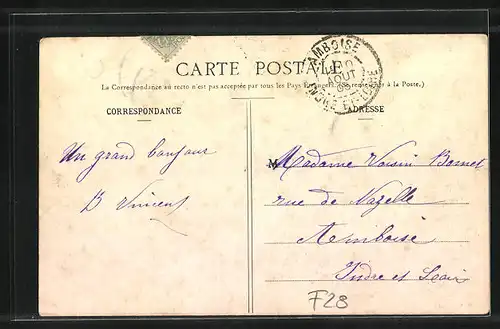 AMBOISE
AOUT
INDRE-ET-LOIRE
CARTE POSTALE
(La Correspondance au recto n'est pas acceptée par tous les Pays Etrangers. Se renseigner à la Poste.)
CORRESPONDANCE
ADRESSE
Un grand bonjour
B Vincent
M Madame Voisin Bonnet
rue de Nazelle
Amboise
Indre et Loire
F28